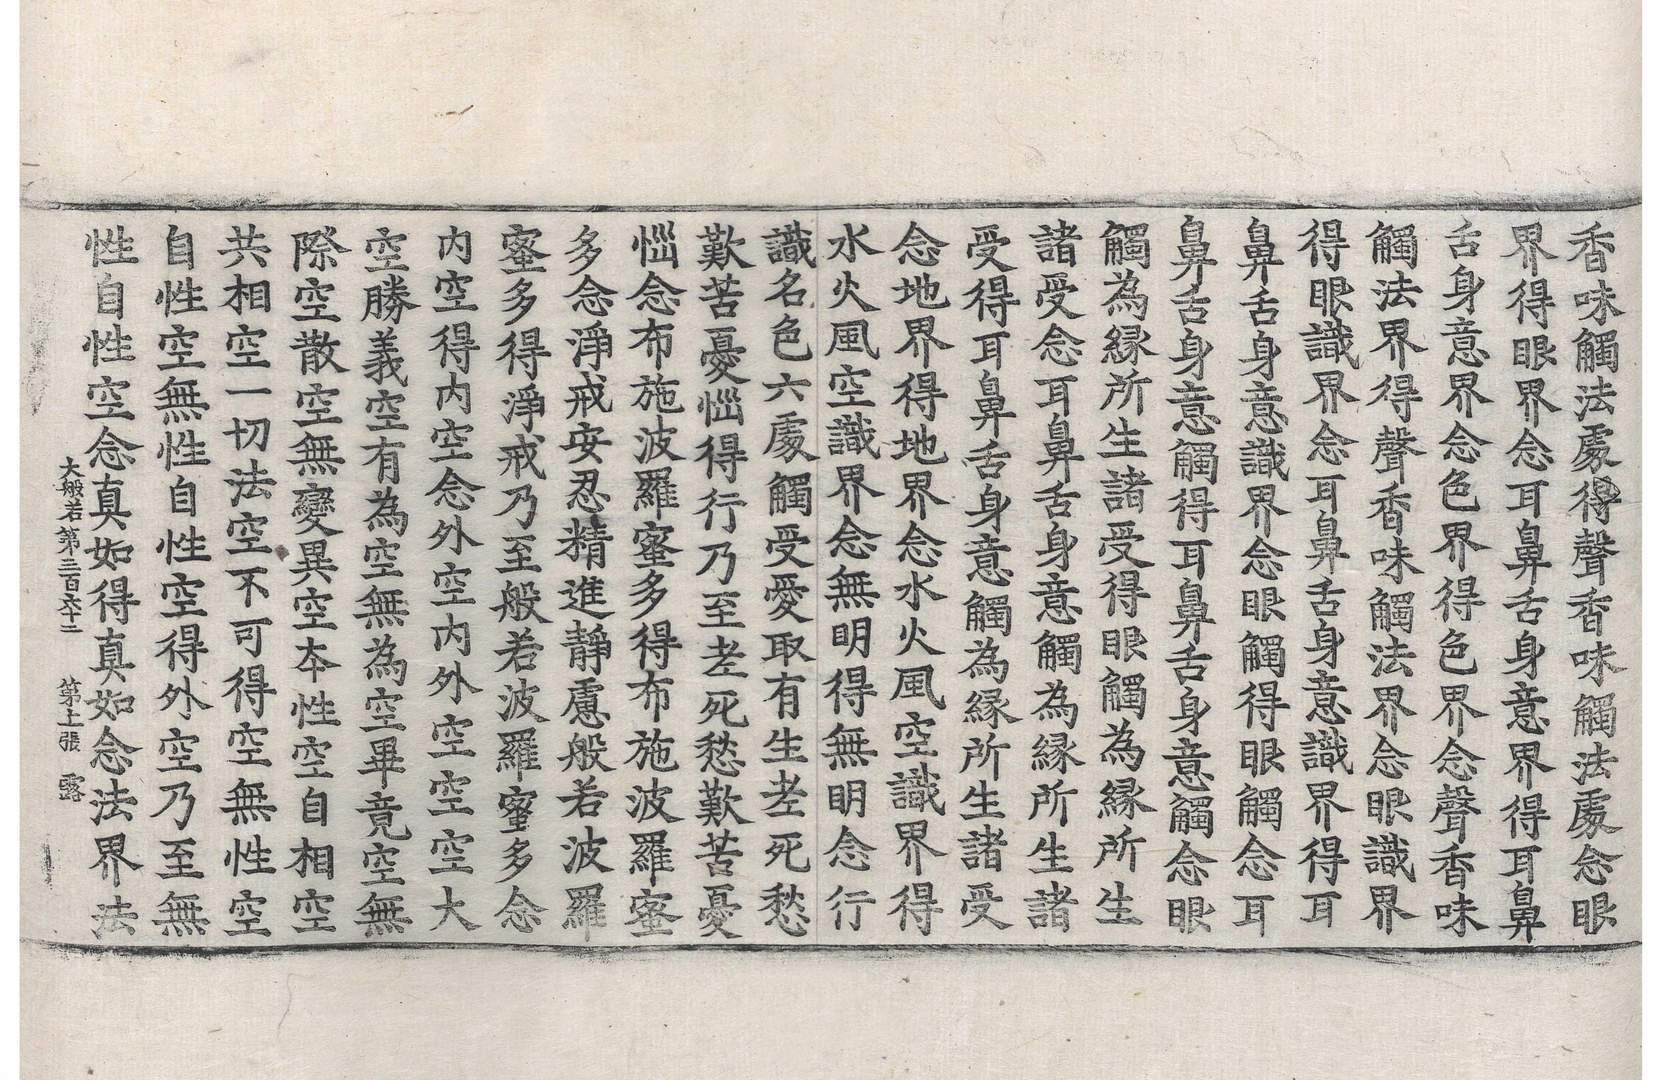 香味觸法處得聲香味觸法處念眼
界得眼界念耳鼻舌身意界得耳鼻
舌身意界念色界得色界念聲香味
觸法界得聲香味觸法界念眼識界
得眼識界念耳鼻舌身意識界得耳
鼻舌身意識界念眼觸得眼觸念耳
鼻舌身意觸得耳鼻舌身意觸念眼
觸為緣所生諸受得眼觸為緣所生
諸受念耳鼻舌身意觸為緣所生諸
受得耳鼻舌身意觸為緣所生諸受
念地界得地界念水火風空識界得
水火風空識界念無明得無明念行
識名色六處觸受愛取有生老死愁
歎苦憂惱得行乃至老死愁歎苦憂
惱念布施波羅蜜多得布施波羅蜜
多念淨戒安忍精進靜慮般若波羅
蜜多得淨戒乃至般若波羅蜜多念
內空得內空念外空內外空空空大
空勝義空有為空無為空畢竟空無
際空散空無變異空本性空自相空
共相空一切法空不可得空無性空
自性空無性自性空得外空乃至無
性自性空念真如得真如念法界法
大般若第三百六十二 第十一張 露